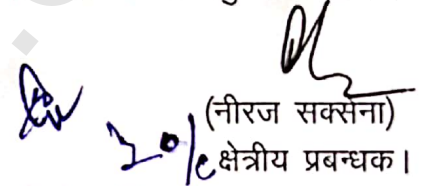 (नीरज सक्सेना)
क्षेत्रीय प्रबन्धक।